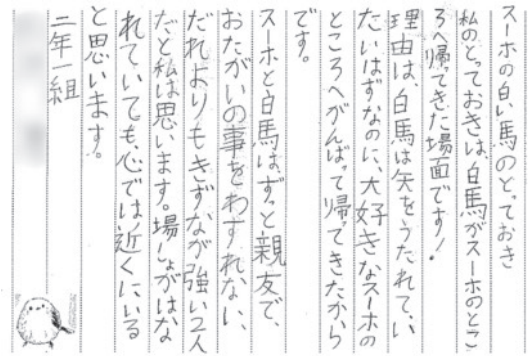 スーホの白い馬のとっておき
私のとっておきは、白馬がスーホのとこ
ろへ帰ってきた場面です！
理由は、白馬は矢をうたれて、い
たいはずなのに、大好きなスーホの
ところへがんばって帰ってきたから
です。
スーホと白馬はずっと親友で、
おたがいの事をわすれない、
だれよりもきずなが強い2人
だと私は思います。場しょがはな
れていても、心では近くにいる
と思います。
二年一組